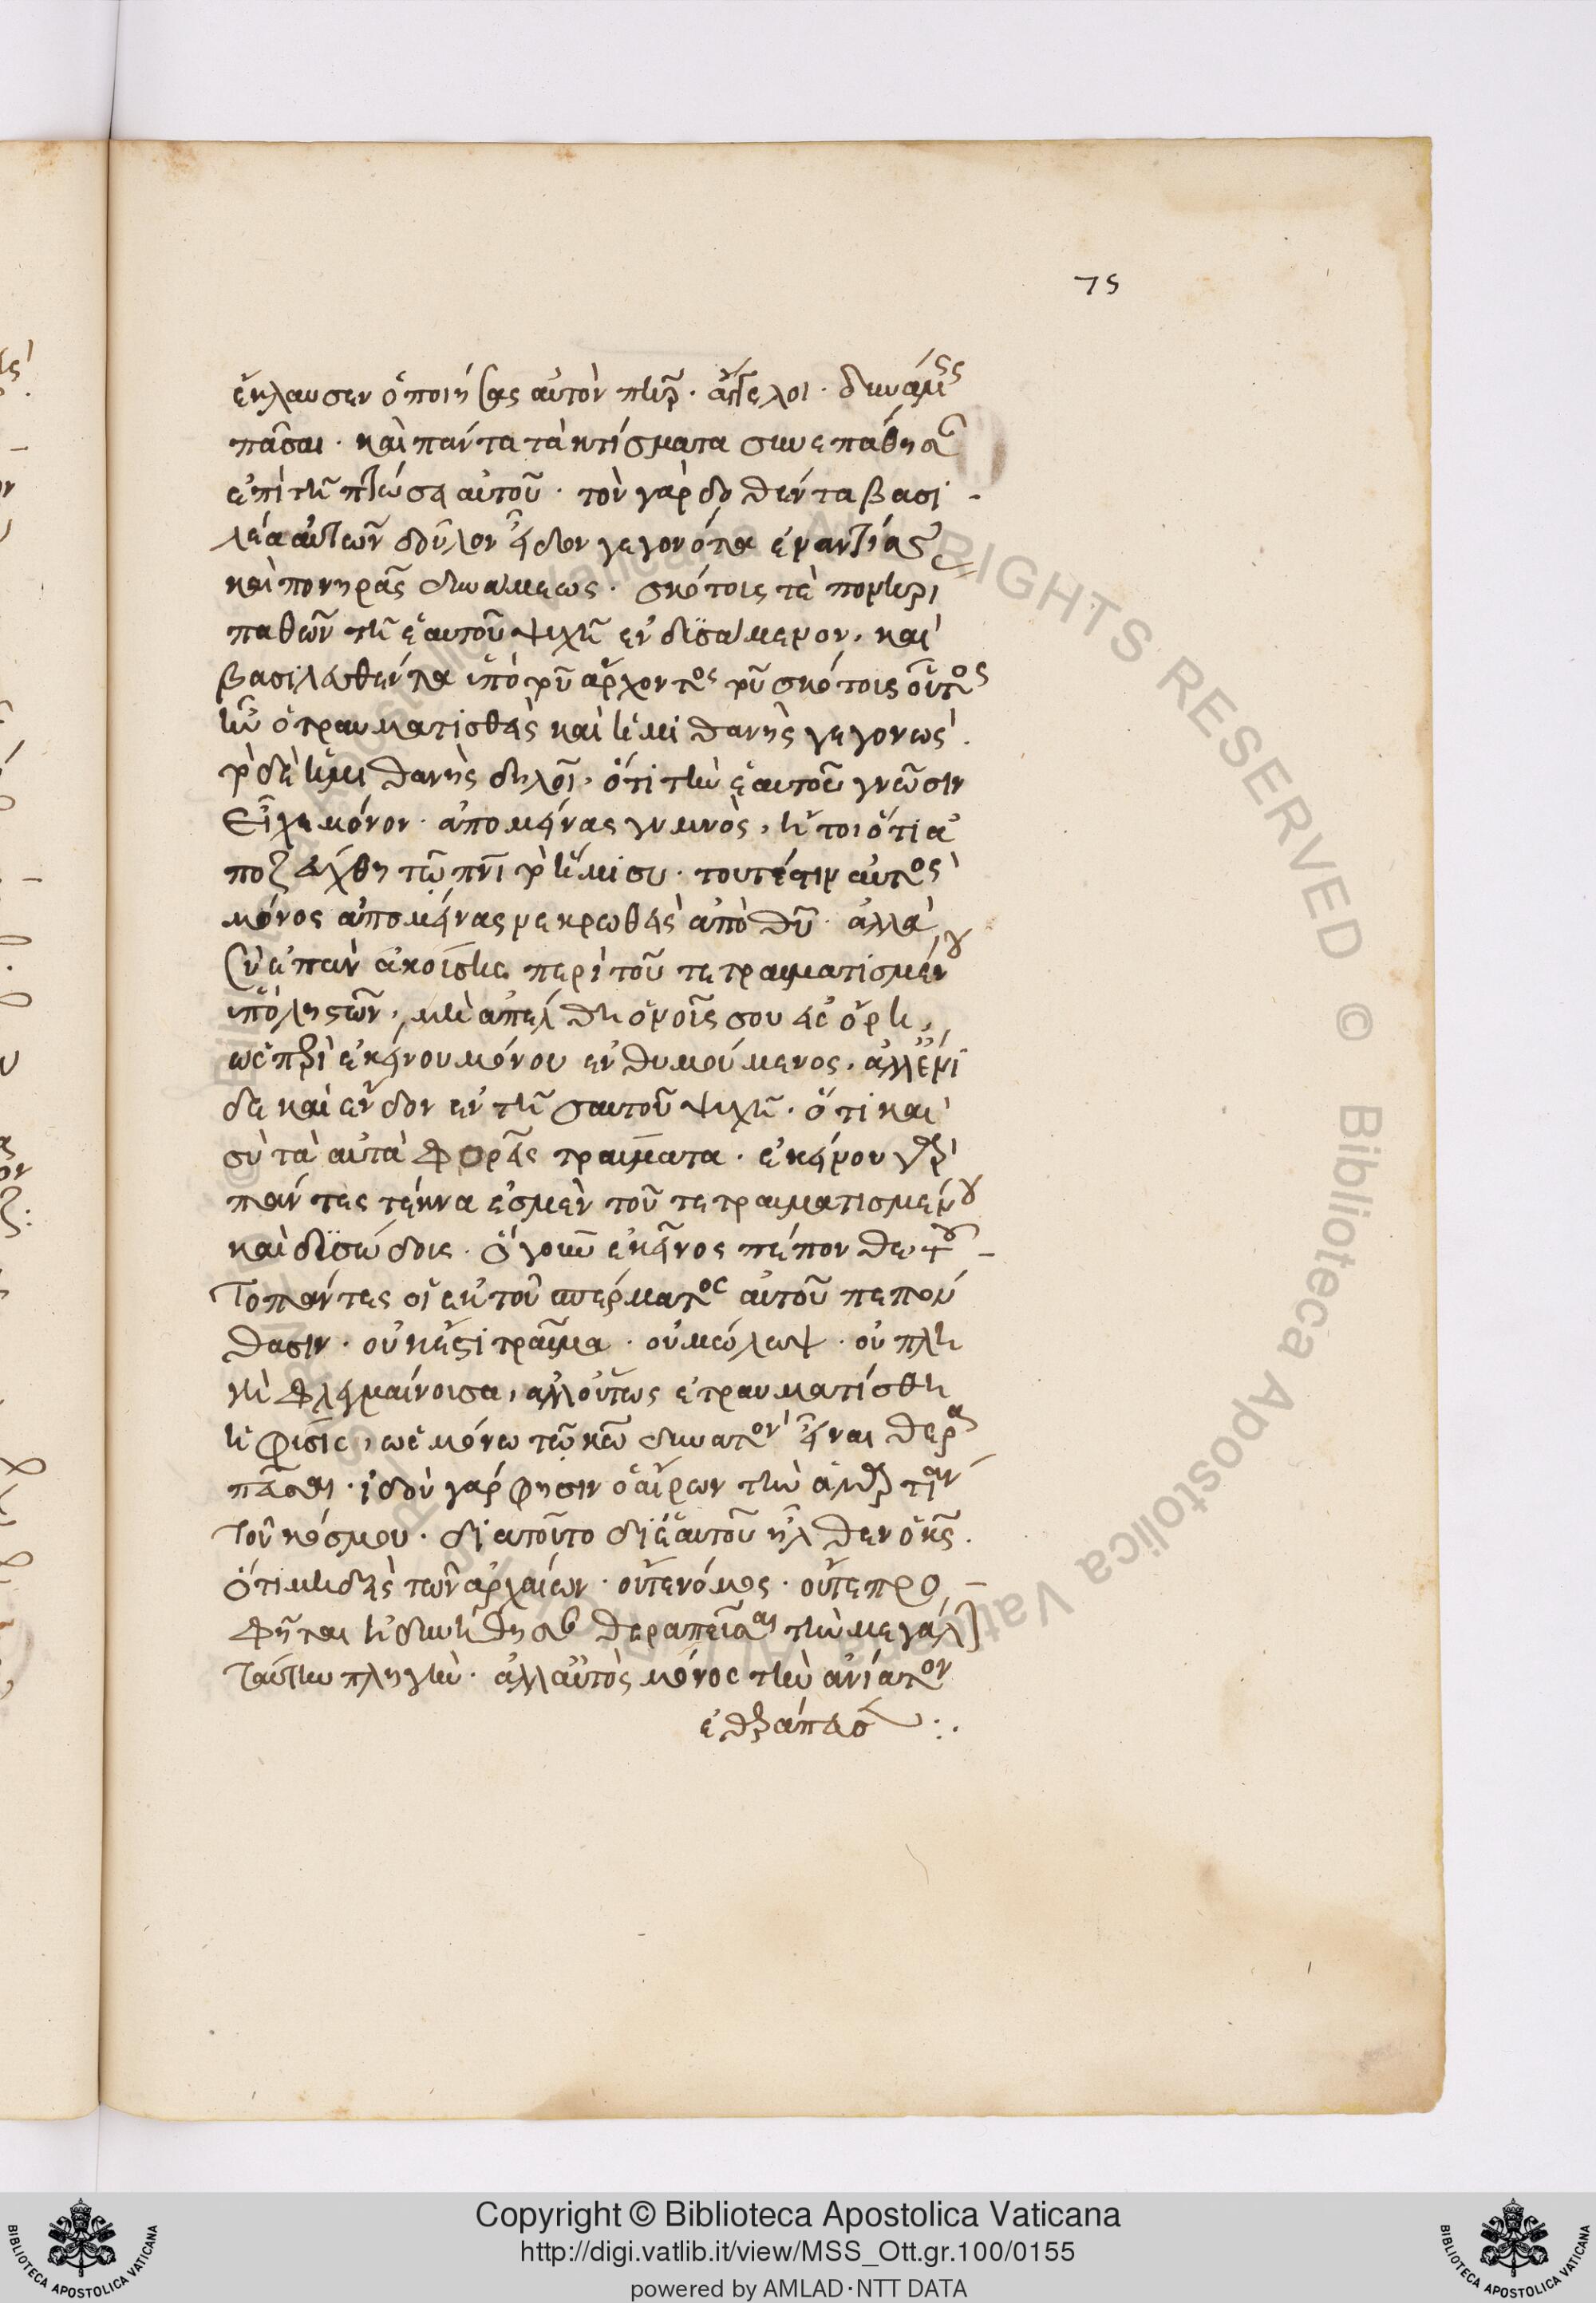 75
ἔκλαυσεν ὁ ποιήσας αὐτὸν πὴρ. ἄγγελοι. δυνάμεις
πᾶσαι. καὶ πάντα τὰ κτίσματα συνεπάθησαν
ἐπὶ τῆ πτώσει αὐτοῦ. τὸν γὰρ δοθέντα βασι-
λέα αὐτῶν δοῦλον εἶδον γεγονότα ἐναντίας
καὶ πονηρᾶς δυνάμεως. σκότοις τὲ πονηρῶ
παθῶν τῆ ἑαυτοῦ ψυχῆ ἐνδυσάμενον. καὶ
βασιλευθέντα ὑπὸ τοῦ ἄρχοντος τοῦ σκότους οὗτος
ἦν ὁ τραυματισθεὶς καὶ ἡμιθανὴς γεγονώς.
τὸ δὲ ἡμιθανὴς δηλοῖ, ὅτι τὴν ἑαυτοῦ γνῶσιν
εἶχε μόνον ἀπομείνας γυμνὸς, ἤτοι ὅτι ἀ
πεζεύχθη τῶ πνι τὸ ἥμισυ. τουτέστιν αὐτὸς
μόνος ἀπομείνας νεκρωθεὶς ἀπὸ θῦ. ἀλλὰ
σὺ ἐπὰν ἀκούσης περὶ τοῦ τετραυματισμένου
ὑπὸ ληστῶν, μὴ ἀπέλθη ὁ νοῦς σου εἰς ὄρη,
ὡς περὶ ἐκείνου μόνου ἐνθυμούμενος, ἀλλ' ἔνι
δε καὶ ἔνδον ἐν τῆ σαυτοῦ ψυχῆ. ὅτι καὶ
σὺ τὰ αὐτὰ φορεῖς τραύματα. ἐκείνου γὰρ
πάντες τέκνα ἐσμὲν τοῦ τετραυματισμένου
καὶ δυσώδους. ὃ γοῦν ἐκεῖνος πέπονθε τοῦ-
το πάντες οἱ ἐκ τοῦ σπέρματος αὐτοῦ πεπόν
θασιν. οὐκ ἔστι τραῦμα. οὐ μώλωψ. οὐ πλη
γὴ φλεγμαίνουσα, ἀλλ' οὕτως ἐτραυματίσθη
ἡ φύσις, ὡς μόνω τῶ κω δυνατὸν εἶναι θερα
πεῦσαι. ἰδοὺ γάρ φησιν ὁ αἴρων τὴν ἁμαρτίαν
τοῦ κόσμου. διατοῦτο δι' ἑαυτοῦ ἦλθεν ὁ κς.
ὅτι μηδεὶς τῶν ἀρχαίων. οὔτε νόμος. οὔτε προ-
φῆται ἠδυνήθησαν θεραπεῦσαι τὴν μεγάλην
ταύτην πληγὴν. ἀλλ' αὐτὸς μόνος τὴν ἀνίατον
ἐθεράπευσεν :.
Copyright © Biblioteca Apostolica Vaticana
http://digi.vatlib.it/view/MSS_Ott.gr.100/0155
powered by AMLAD·NTT DATA